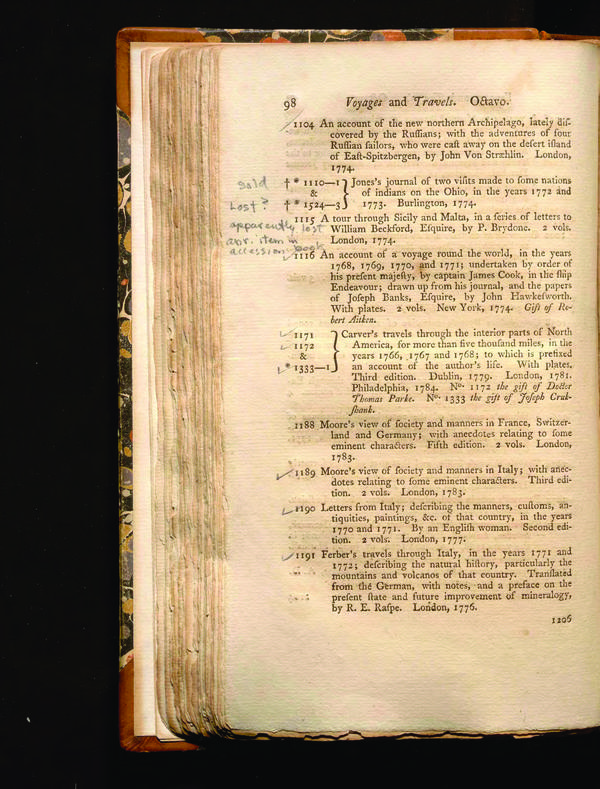 98 Voyages and Travels. Octavo.
1104 An account of the new northern Archipelago, lately diſ-
covered by the Ruſſians; with the adventures of four
Ruſſian ſailors, who were caſt away on the deſert iſland
of Eaſt-Spitzbergen, by John Von Stræhlin. London,
1774.
sold † * 1110—1 } Jones's journal of two viſits made to ſome nations
& of indians on the Ohio, in the years 1772 and
Lost? † * 1524—3 1773. Burlington, 1774.
1115 A tour through Sicily and Malta, in a ſeries of letters to
apparently lost
William Beckford, Eſquire, by P. Brydone. 2 vols.
item in
London, 1774.
accession book
1116 An account of a voyage round the world, in the years
1768, 1769, 1770, and 1771; undertaken by order of
his preſent majeſty, by captain James Cook, in the ſhip
Endeavour; drawn up from his journal, and the papers
of Joſeph Banks, Eſquire, by John Hawkeſworth.
With plates. 2 vols. New York, 1774. Gift of Ro-
bert Aitken.
1171 } Carver's travels through the interior parts of North
1172 America, for more than five thouſand miles, in the
& years 1766, 1767 and 1768; to which is prefixed
* 1333—1 an account of the author's life. With plates.
Third edition. Dublin, 1779. London, 1781.
Philadelphia, 1784. No. 1172 the gift of Doctor
Thomas Parke. No. 1333 the gift of Joſeph Cruk-
ſhank.
1188 Moore's view of ſociety and manners in France, Switzer-
land and Germany; with anecdotes relating to ſome
eminent characters. Fifth edition. 2 vols. London,
1783.
1189 Moore's view of ſociety and manners in Italy; with anec-
dotes relating to ſome eminent characters. Third edi-
tion. 2 vols. London, 1783.
1190 Letters from Italy; deſcribing the manners, cuſtoms, an-
tiquities, paintings, &c. of that country, in the years
1770 and 1771. By an Engliſh woman. Second edi-
tion. 2 vols. London, 1777.
1191 Ferber's travels through Italy, in the years 1771 and
1772; deſcribing the natural hiſtory, particularly the
mountains and volcanos of that country. Tranſlated
from the German, with notes, and a preface on the
preſent ſtate and future improvement of mineralogy,
by R. E. Raſpe. London, 1776.
1206